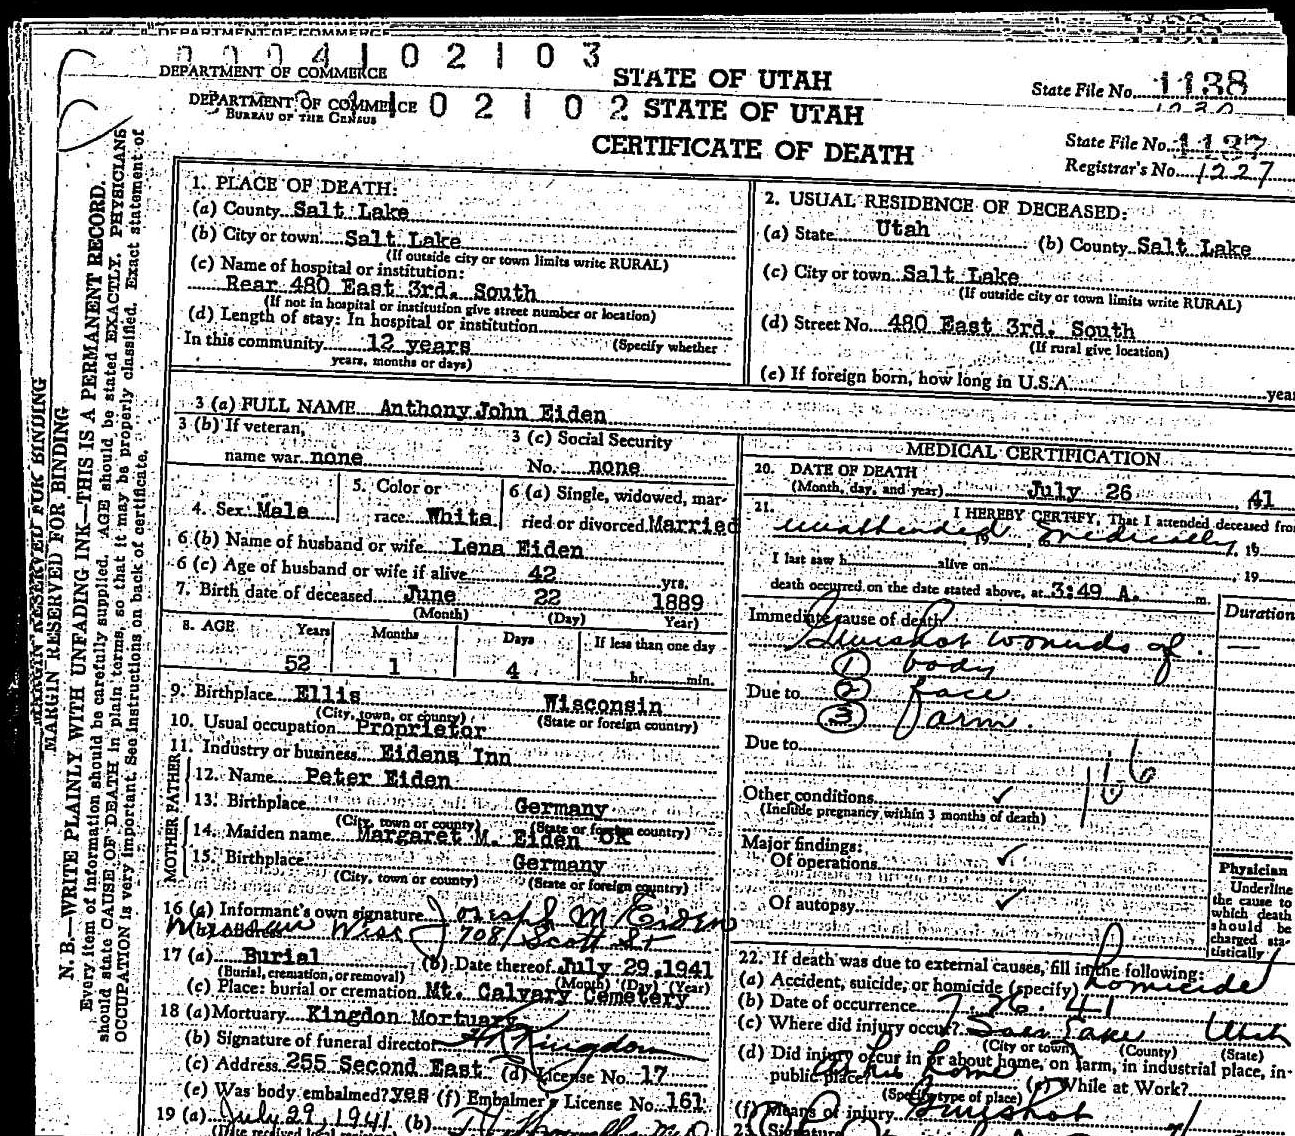 DEPARTMENT OF COMMERCE
0 0 0 4 1 0 2 1 0 3
DEPARTMENT OF COMMERCE
STATE OF UTAH
State File No. 1138
DEPARTMENT OF COMMERCE
BUREAU OF THE CENSUS
0 2 1 0 2
STATE OF UTAH
CERTIFICATE OF DEATH
State File No. 1137
Registrar's No. 1227
MARGIN RESERVED FOR BINDING
N. B.—WRITE PLAINLY WITH UNFADING INK—THIS IS A PERMANENT RECORD.
Every item of information should be carefully supplied. AGE should be stated EXACTLY. PHYSICIANS
should state CAUSE OF DEATH in plain terms, so that it may be properly classified. Exact statement of
OCCUPATION is very important. See instructions on back of certificate.
1. PLACE OF DEATH:
(a) County Salt Lake
(b) City or town Salt Lake
(If outside city or town limits write RURAL)
(c) Name of hospital or institution:
Rear 480 East 3rd. South
(If not in hospital or institution give street number or location)
(d) Length of stay: In hospital or institution
In this community 12 years (Specify whether
years, months or days)
2. USUAL RESIDENCE OF DECEASED:
(a) State Utah (b) County Salt Lake
(c) City or town Salt Lake
(If outside city or town limits write RURAL)
(d) Street No. 480 East 3rd. South
(If rural give location)
(e) If foreign born, how long in U.S.A.
3 (a) FULL NAME Anthony John Eiden
3 (b) If veteran,
name war none
3 (c) Social Security
No. none
4. Sex Male
5. Color or
race White
6 (a) Single, widowed, mar-
ried or divorced Married
6 (b) Name of husband or wife Lena Eiden
6 (c) Age of husband or wife if alive 42 yrs.
7. Birth date of deceased June 22 1889
(Month) (Day) Year)
8. AGE Years Months Days If less than one day
52 1 4 hr. min.
9. Birthplace Ellis Wisconsin
(City, town, or county) (State or foreign country)
10. Usual occupation Proprietor
11. Industry or business Eidens Inn
FATHER
12. Name Peter Eiden
13. Birthplace Germany
(City, town or county) (State or foreign country)
MOTHER
14. Maiden name Margaret M. Eiden OK
15. Birthplace Germany
(City, town or county) (State or foreign country)
16 (a) Informant's own signature Joseph M. Eiden
708 Scott St
17 (a) Burial (b) Date thereof July 29, 1941
(Burial, cremation, or removal) (Month) (Day) (Year)
(c) Place: burial or cremation Mt. Calvary Cemetery
18 (a) Mortuary Kingdon Mortuary
(b) Signature of funeral director Kingdon
(c) Address 255 Second East (d) License No. 17
(e) Was body embalmed? yes (f) Embalmer, License No. 161
19 (a) July 29, 1941 (b)
MEDICAL CERTIFICATION
20. DATE OF DEATH
(Month, day, and year) July 26 41
21. I HEREBY CERTIFY, That I attended deceased from
unattended medically, 19
I last saw h alive on , 19
death occurred on the date stated above, at 3:49 A. m.
Immediate cause of death Duration
Gunshot wounds of —
① body
Due to ② face
③ arm.
Due to
Other conditions
(Include pregnancy within 3 months of death)
Major findings:
Of operations
Of autopsy
Physician
Underline
the cause to
which death
should be
charged sta-
tistically
22. If death was due to external causes, fill in the following:
(a) Accident, suicide, or homicide (specify) homicide
(b) Date of occurrence 7. 26. 41
(c) Where did injury occur? Salt Lake Utah
(City or town) (County) (State)
(d) Did injury occur in or about home, on farm, in industrial place, in-
public place? At his home (e) While at Work?
(Specify type of place)
(f) Means of injury Gunshot
23. Signature